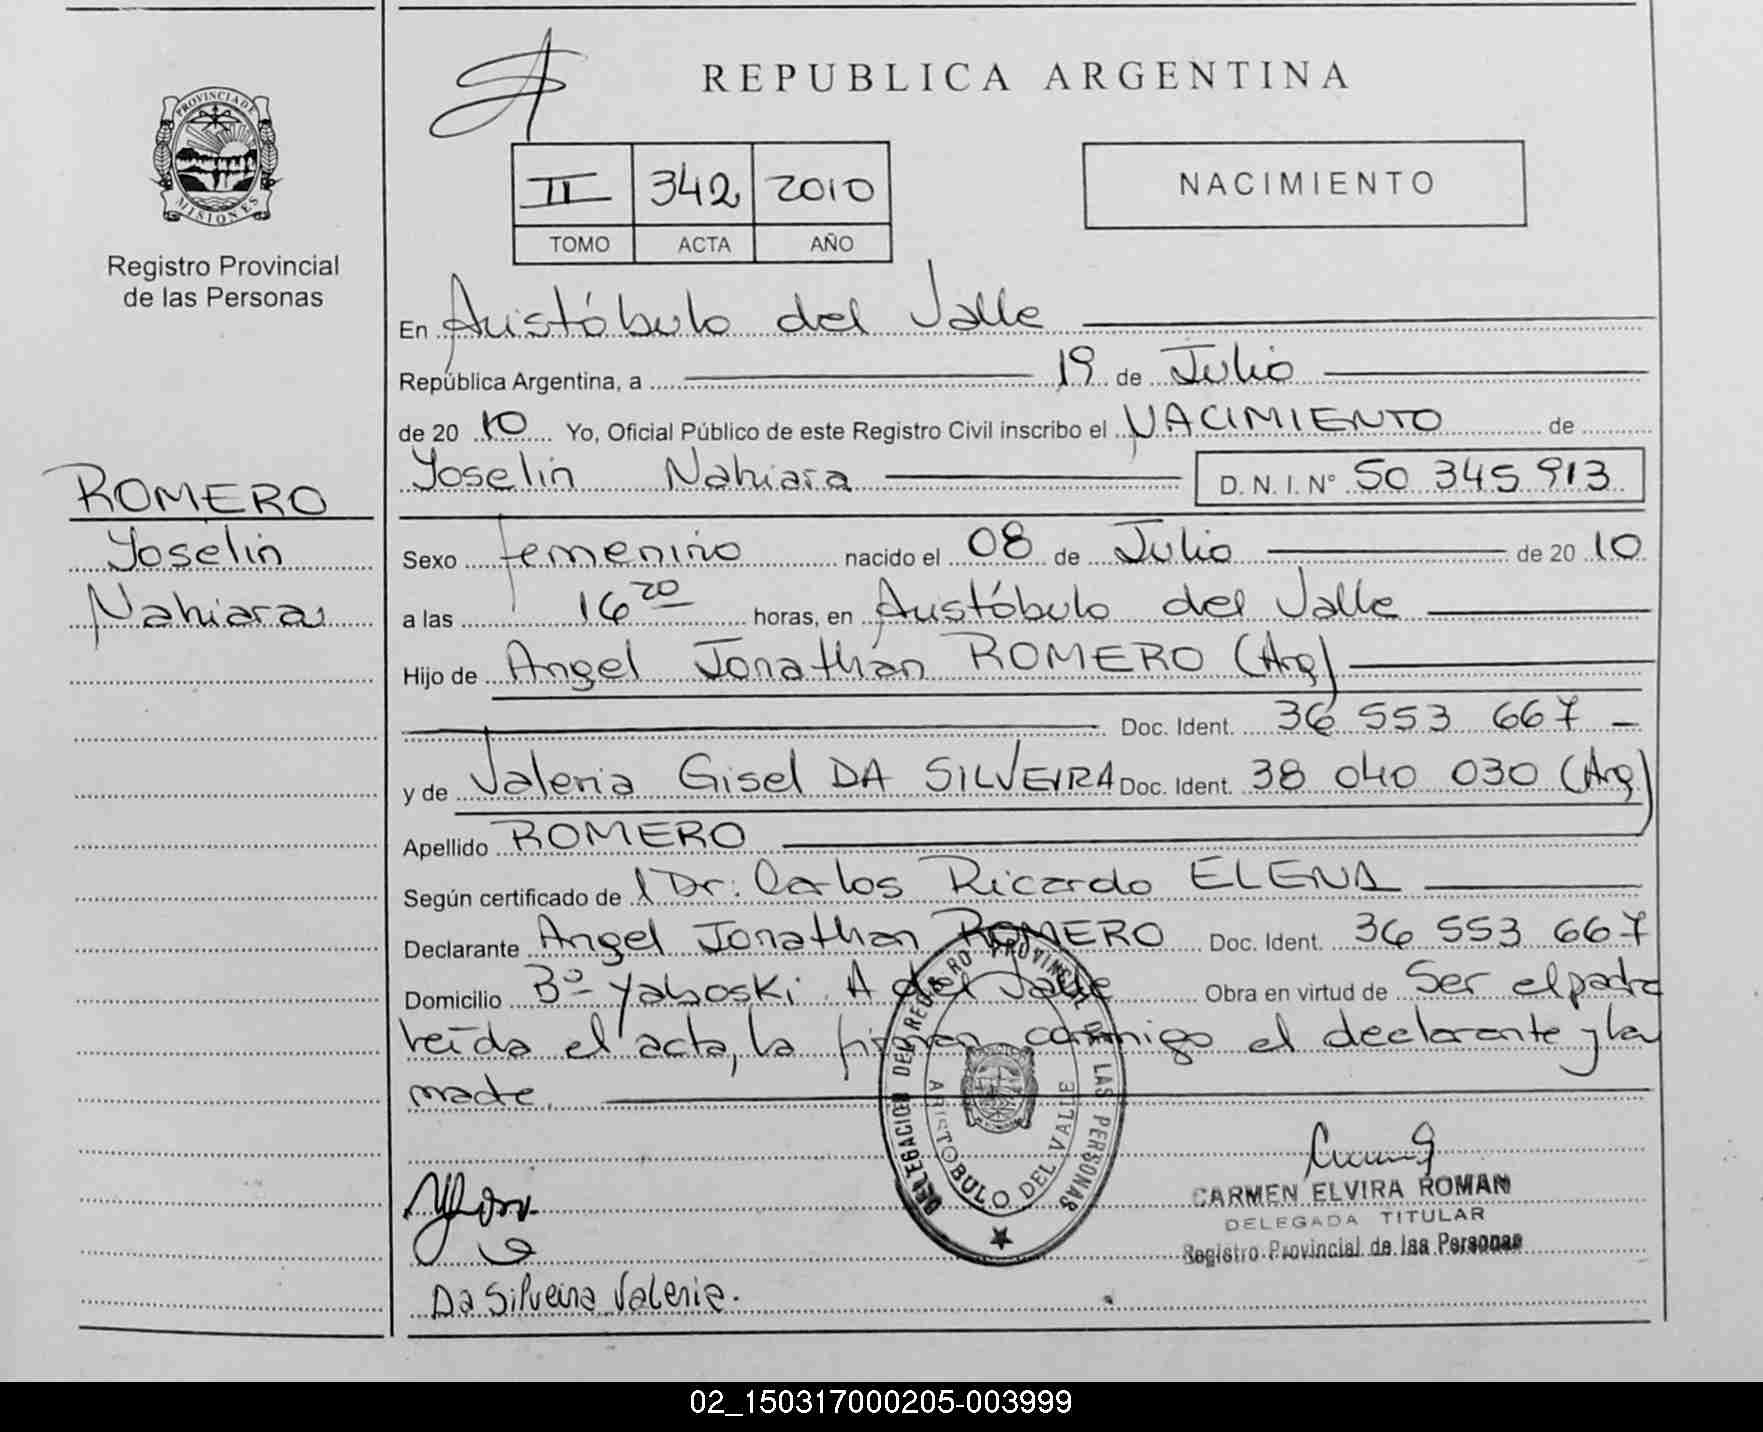 REPUBLICA ARGENTINA
PROVINCIA DE
MISIONES
Registro Provincial
de las Personas
II 342 2010
TOMO ACTA AÑO
NACIMIENTO
En Aristóbulo del Valle
República Argentina, a 19 de Julio
de 20 10 Yo, Oficial Público de este Registro Civil inscribo el NACIMIENTO de
Yoselin Nahiara D. N. I. N° 50 345 913
ROMERO
Yoselin
Nahiara
Sexo femenino nacido el 08 de Julio de 20 10
a las 16 20 horas, en Aristóbulo del Valle
Hijo de Angel Jonathan ROMERO (Arg)
Doc. Ident. 36 553 667
y de Valeria Gisel DA SILVEIRA Doc. Ident. 38 040 030 (Arg)
Apellido ROMERO
Según certificado de l Dr: Carlos Ricardo ELENA
Declarante Angel Jonathan ROMERO Doc. Ident. 36 553 667
Domicilio Bº Yaboski. A del Valle Obra en virtud de Ser el padre
leída el acta, la firman conmigo el declarante y la
madre.
DELEGACION DEL REGISTRO PROVINCIAL DE LAS PERSONAS
ARISTOBULO DEL VALLE
CARMEN ELVIRA ROMAN
DELEGADA TITULAR
Registro Provincial de las Personas
Da Silveira Valeria.
02_150317000205-003999